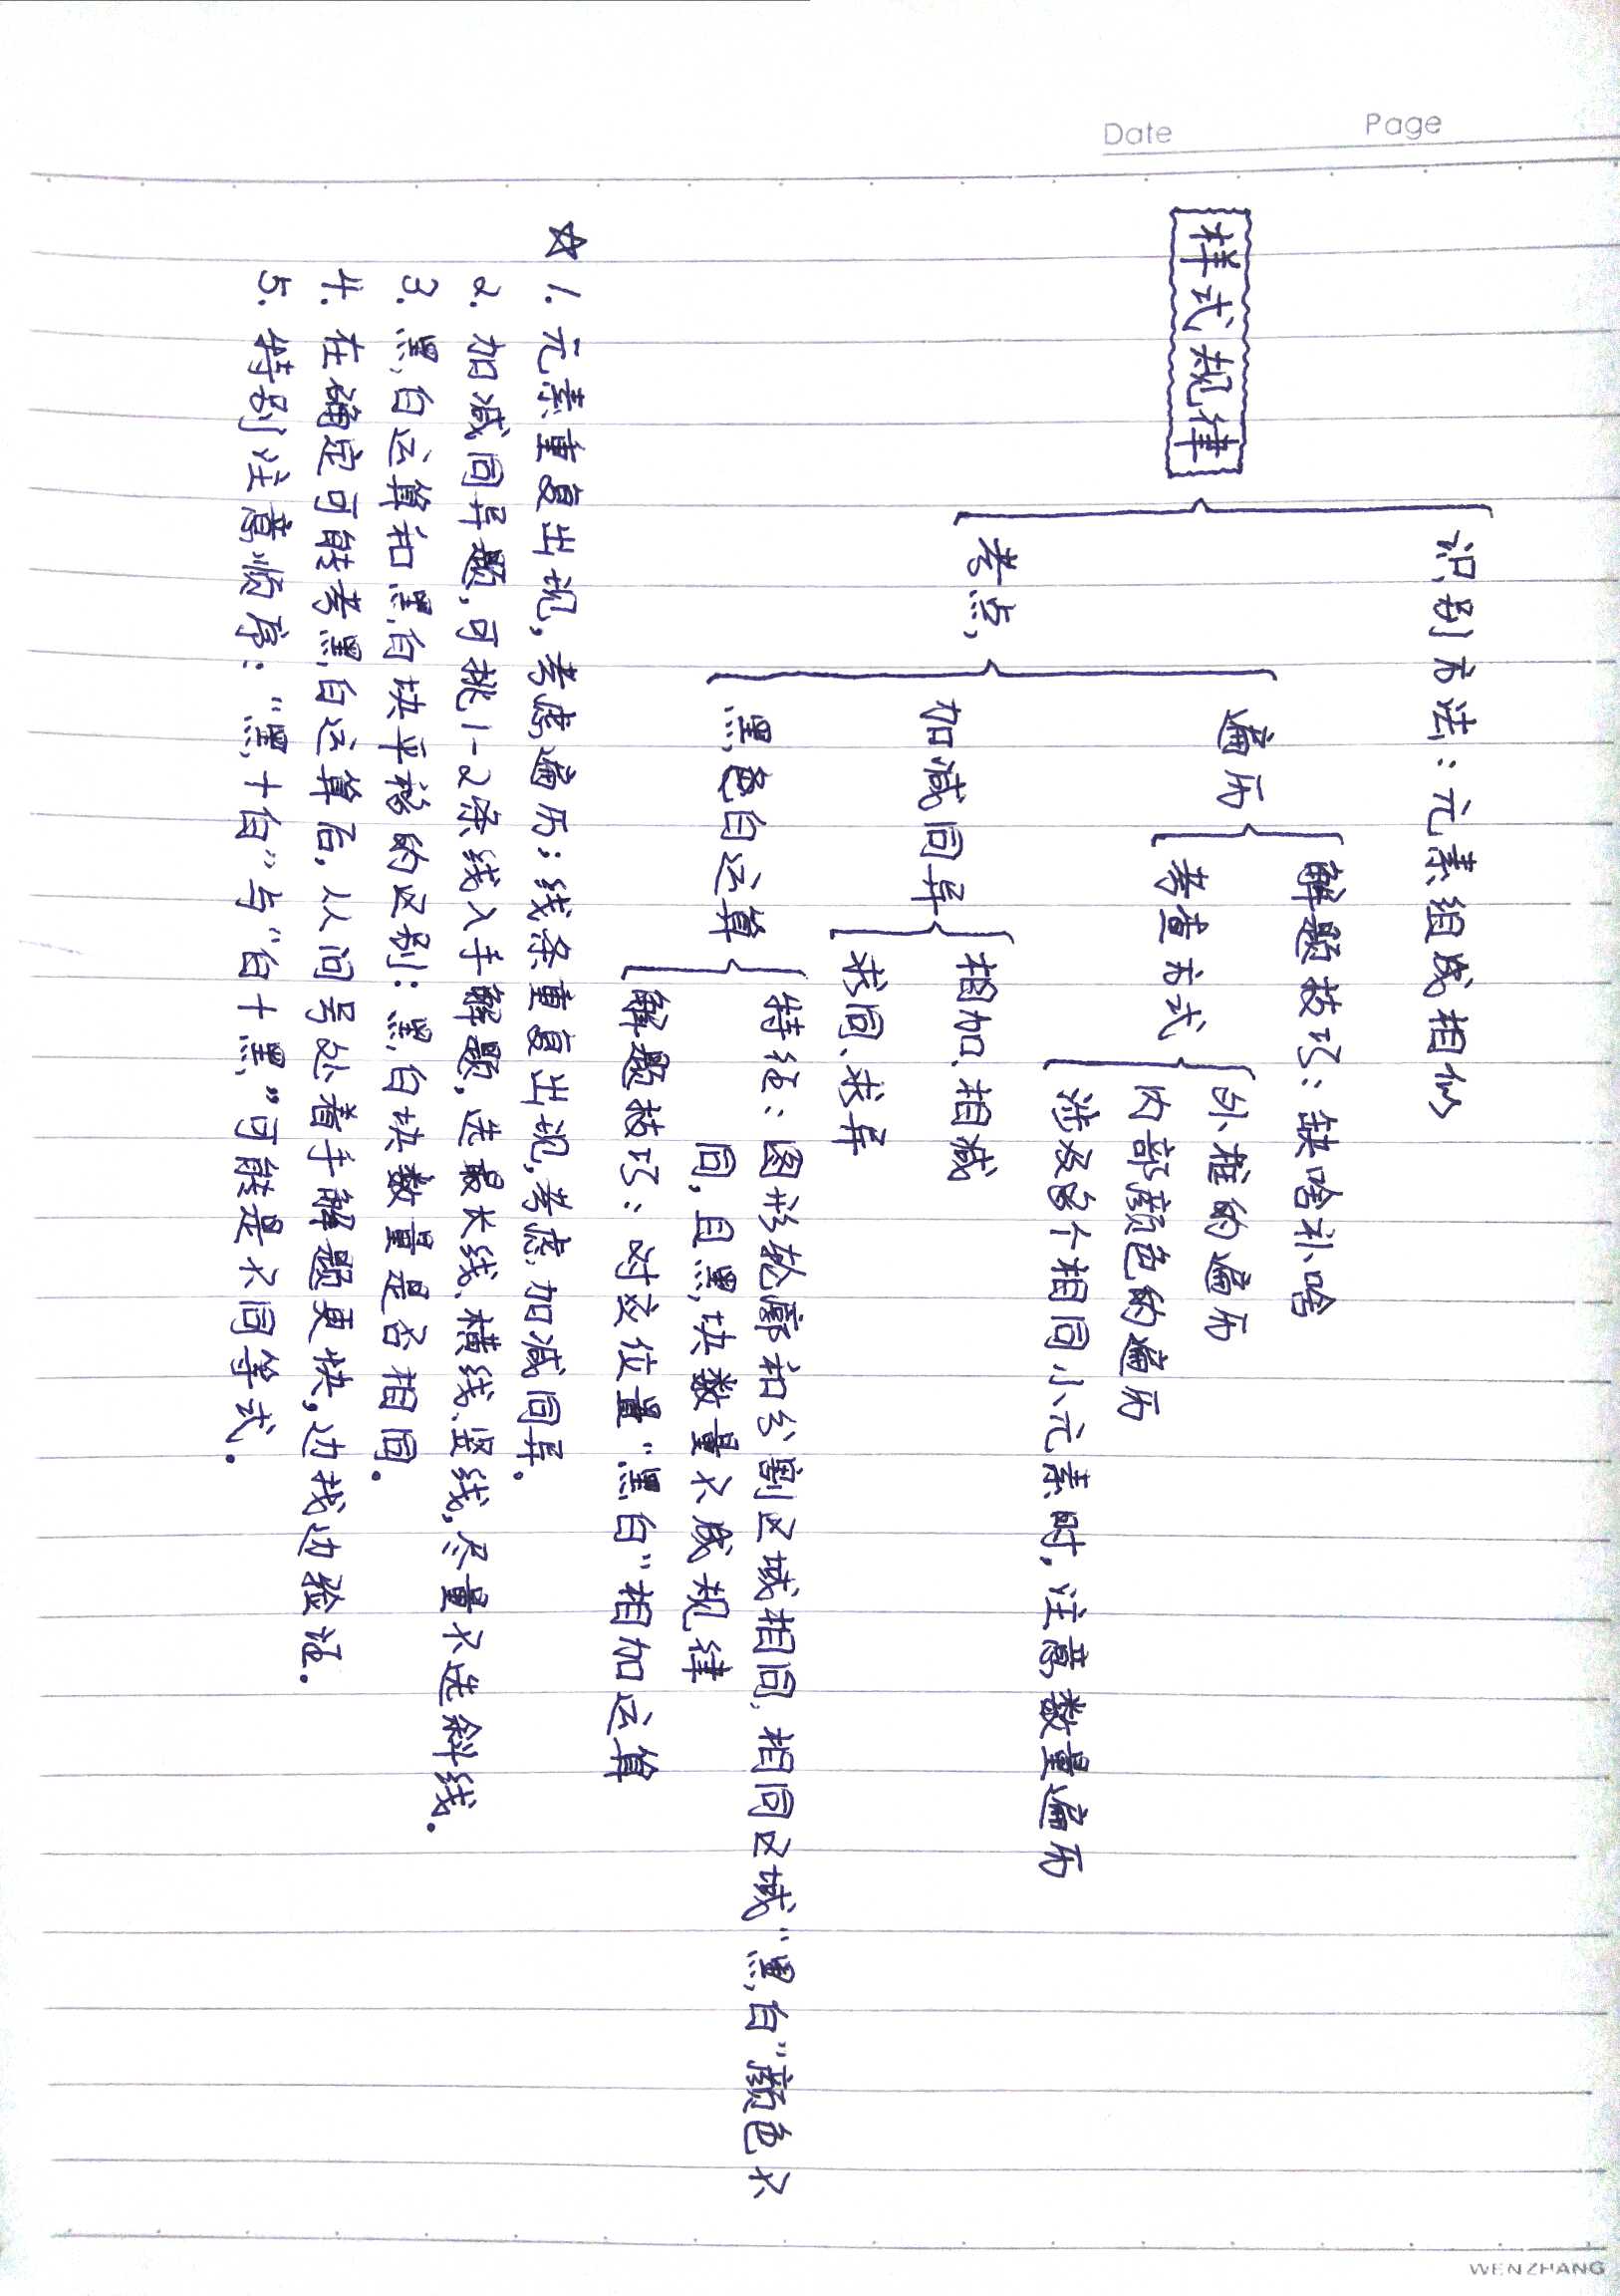 Date
Page
样式规律
识别方法：元素组成相似
考点
遍历
解题技巧：缺啥补啥
考查方式
外框的遍历
内部颜色的遍历
涉及多个相同小元素时，注意数量遍历
加减同异
相加、相减
求同、求异
黑色白运算
特征：图形轮廓和分割区域相同，相同区域“黑、白”颜色不
同，且黑块数量不成规律
解题技巧：对应位置“黑白”相加运算
☆ 1. 元素重复出现，考虑遍历；线条重复出现，考虑加减同异。
2. 加减同异题，可挑1-2条线入手解题，选最长线、横线、竖线，尽量不选斜线。
3. 黑白运算和黑白块平移的区别：黑白块数量是否相同。
4. 在确定可能考黑白运算后，从问号处着手解题更快，边找边验证。
5. 特别注意顺序：“黑+白”与“白+黑”可能是不同等式。
WENZHANG